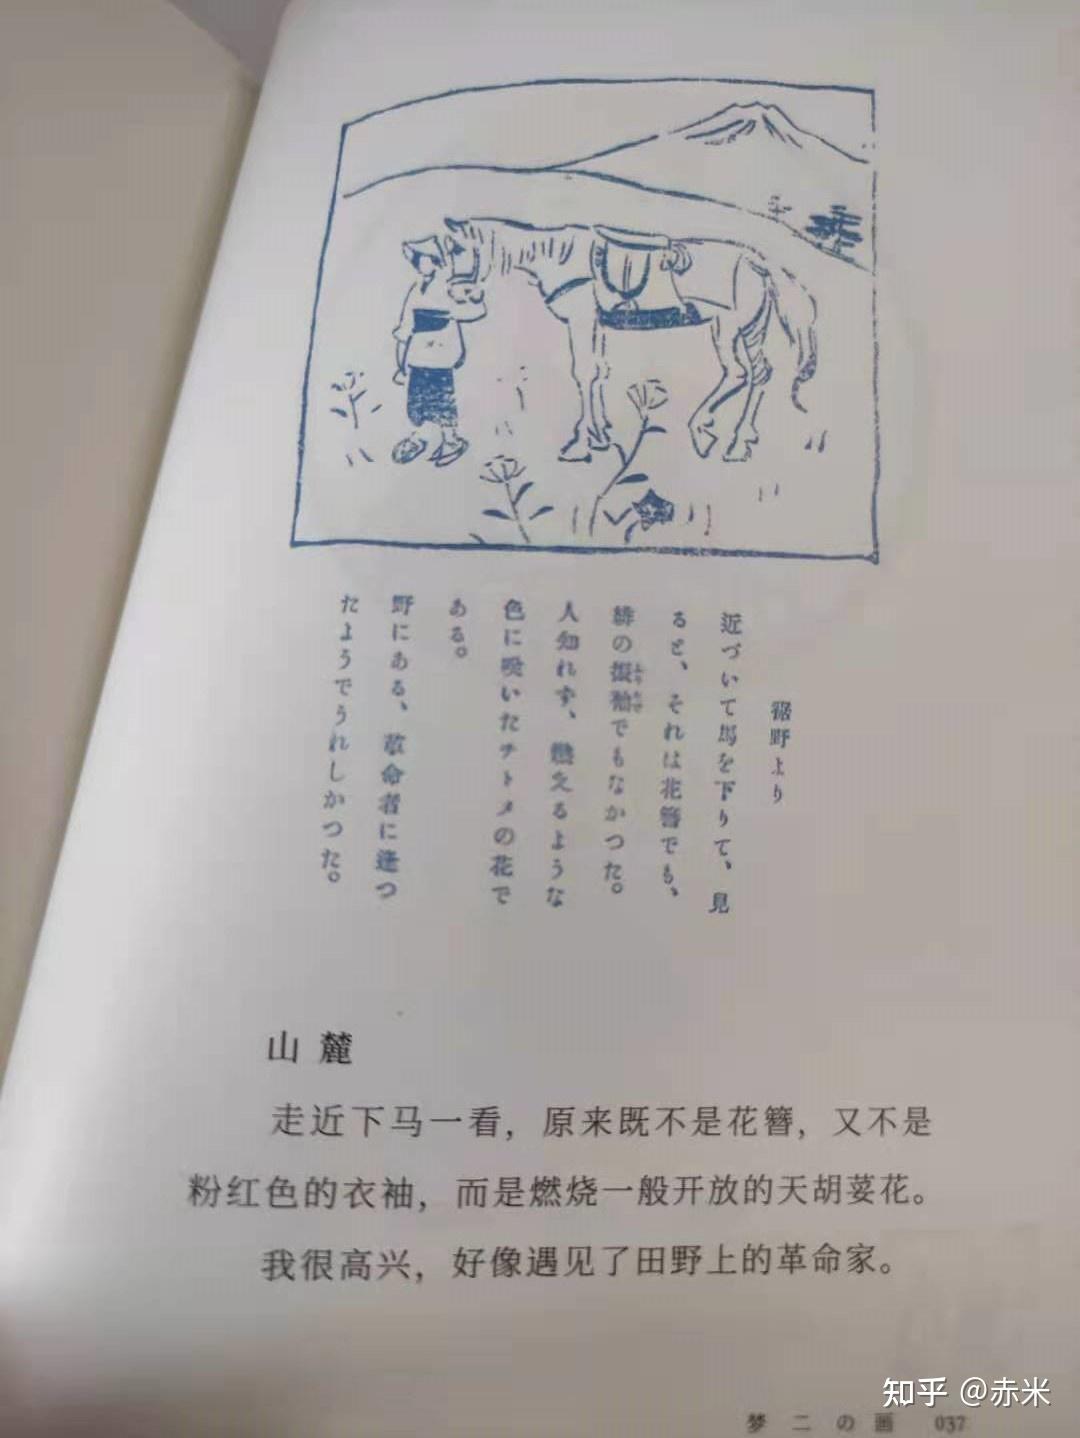 裾野より
近づいて馬を下りて、見
ると、それは花簪でも、
緋の振袖でもなかつた。
人知れず、燃えるような
色に咲いたチトメの花で
ある。
野にある、革命者に逢つ
たようでうれしかつた。
山麓
走近下马一看，原来既不是花簪，又不是
粉红色的衣袖，而是燃烧一般开放的天胡荽花。
我很高兴，好像遇见了田野上的革命家。
知乎 @赤米
梦二の画 037